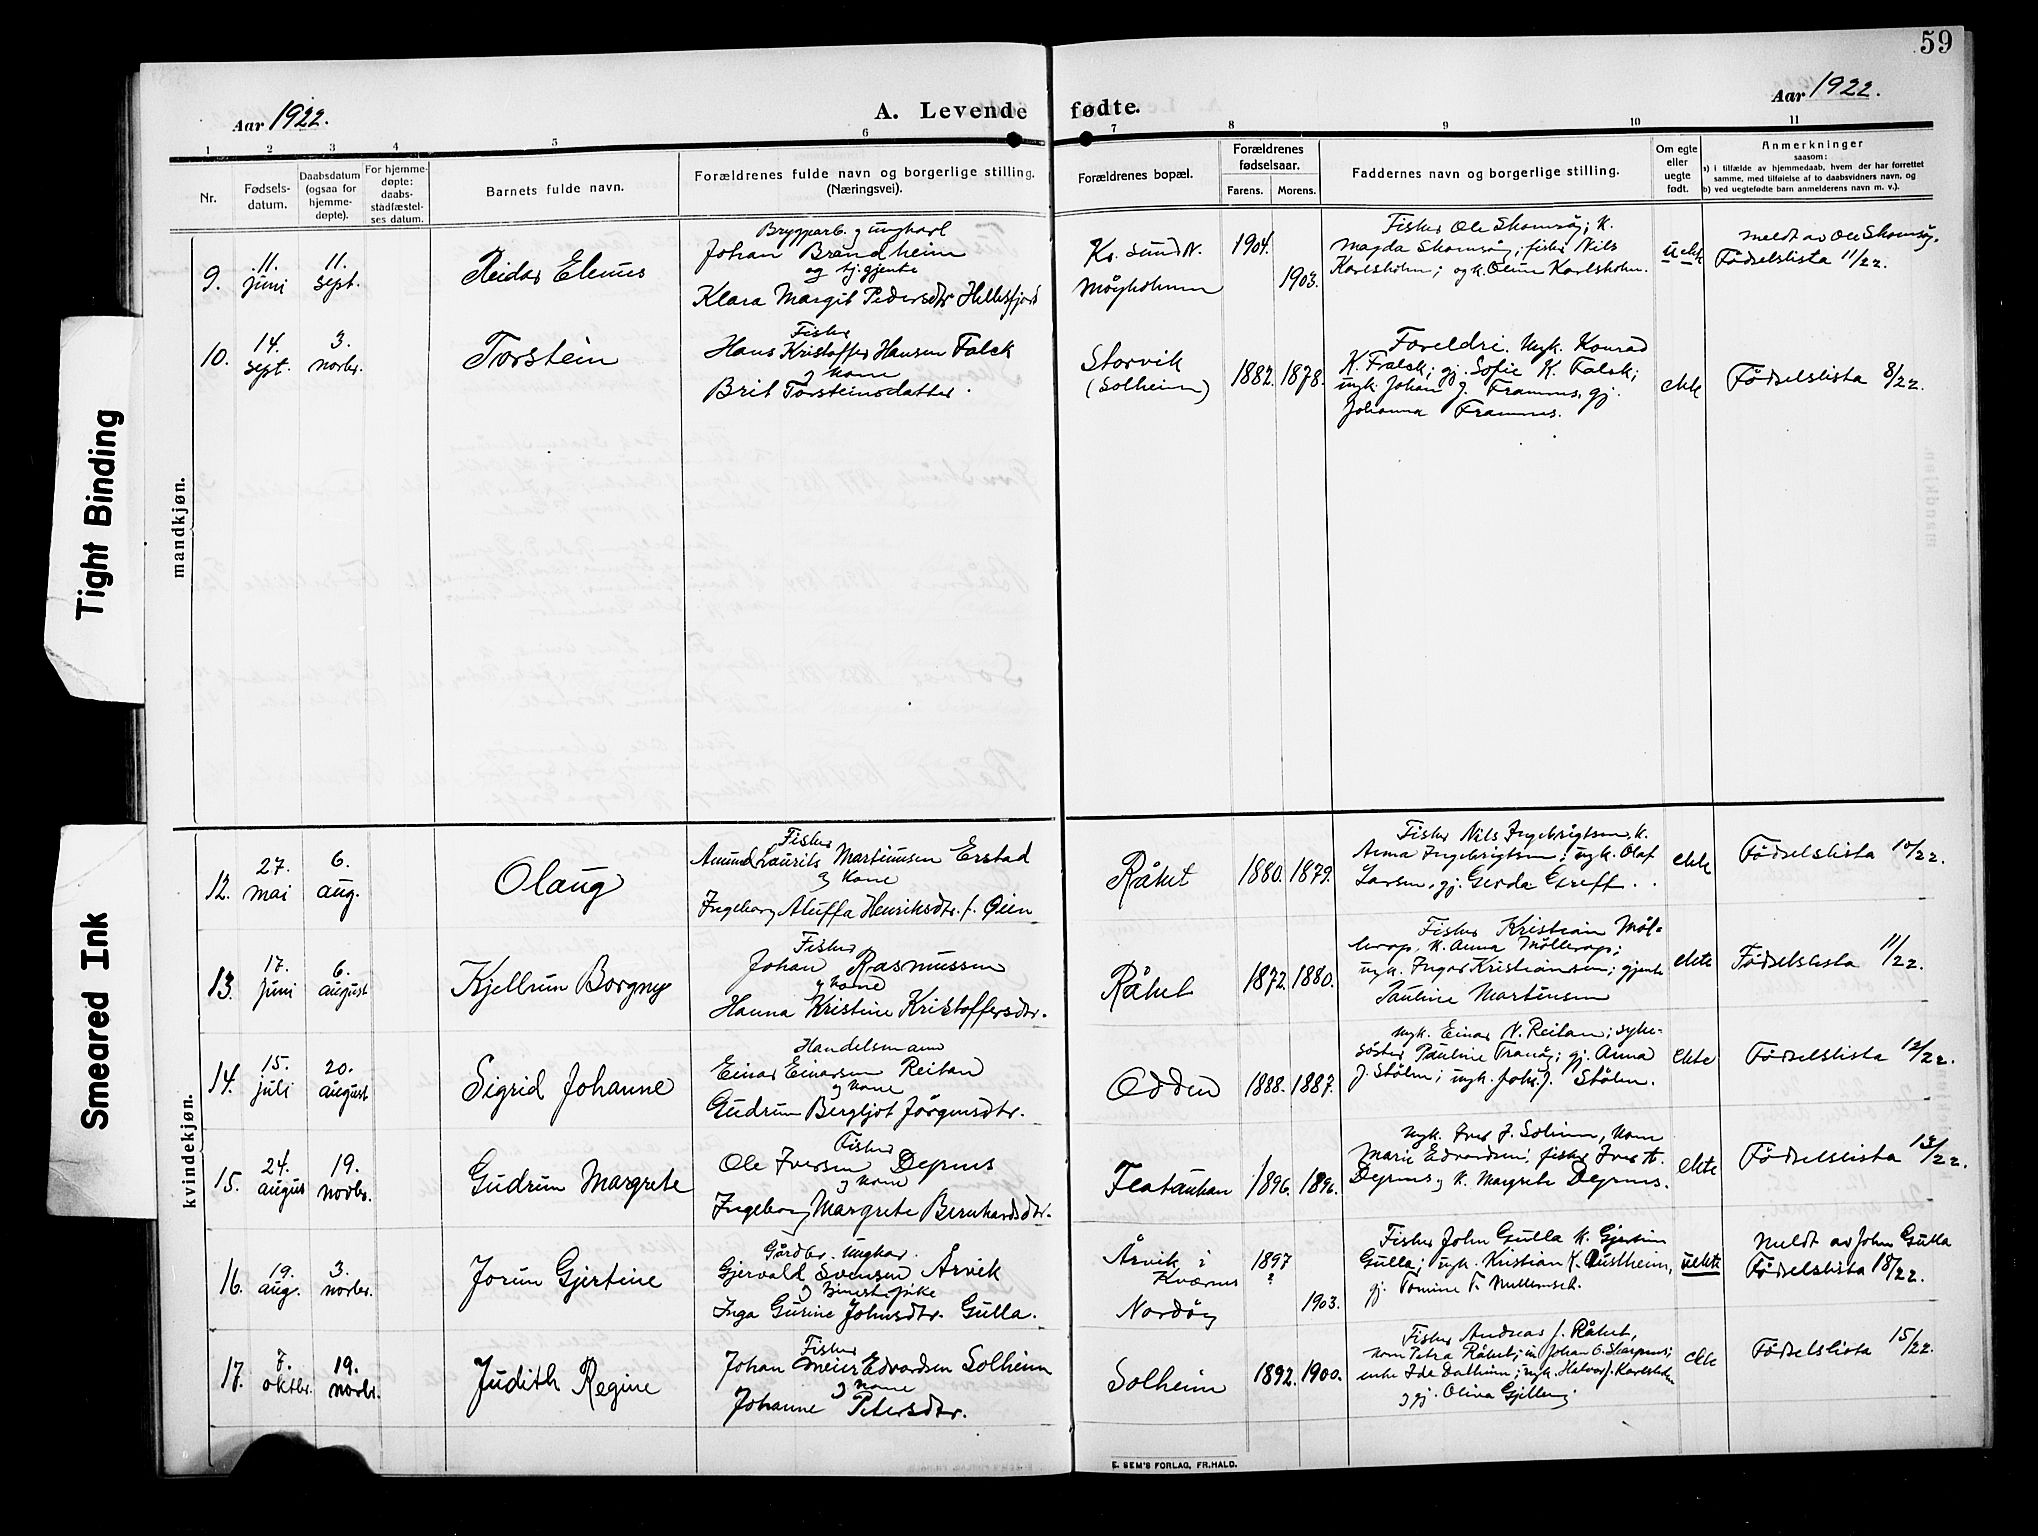 59
Aar 1922.
A. Levende fødte.
Aar 1922.
1 2 3 4 5 6 7 8 9 10 11
Nr.
Fødsels-
datum.
Daabsdatum
(ogsaa for
hjemme-
døpte).
For hjemme-
døpte:
daabs-
stadfæstel-
ses datum.
Barnets fulde navn.
Forældrenes fulde navn og borgerlige stilling.
(Næringsvei).
Forældrenes bopæl.
Forældrenes
fødselsaar.
Farens. Morens.
Faddernes navn og borgerlige stilling.
Om egte
eller
uegte
født.
Anmerkninger
saasom:
a) i tilfælde av hjemmedaab, hvem der har forrettet
samme, med tilføielse af to daabsvidners navn, og
b) ved uegtefødte barn anmelderens navn m. v.).
mandkjøn.
9.
11.
juni
11.
sept.
Reidar Elenus
Bryggarb. og ungkarl
Johan Brandheim
og tj.gjente
Klara Margit Pedersdtr Hellesfjord
Kr. sund N.
Møyholmen
1904.
1903.
Fisker Ole Skomsøy; k.
Magda Skomsøy; fisker Nils
Karlsholm; og k. Oline Karlsholm.
uekte
Meldt av Ole Skomsøy.
Födselslista 11/22.
10.
14.
sept.
3.
novbr.
Torstein
Fisker
Hans Kristoffer Hansen Falck
og kone
Brit Torsteinsdatter.
Storvik
(Solheim)
1882. 1878.
Foreldri. Ugk. Konrad
K. Falsk; gj. Sofie K. Falsk;
ugk. Johan J. Framnes, gj.
Johanna Framnes.
ekte
Födselslista 8/22.
kvindekjøn.
12.
27.
mai
6.
aug.
Olaug
Fisker
Amund Laurits Martinusen Erstad
og kone
Ingeborg Aluffa Henriksdtr. f. Øien
Råket
1880. 1879.
Fisker Nils Ingebrigtsen, k.
Anna Ingebrigtsen; ugk. Olaf
Larsen, gj. Gerda Greff.
ekte
Födselslista 10/22.
13.
17.
juni
6.
august
Kjellrun Borgny
Fisker
Johan Rasmussen
og kone
Hanna Kristine Kristoffersdtr.
Råket
1872. 1880.
Fisker Kristian Møl-
lerop, k. Anna Møllerop;
ugk. Ingar Kristiansen; gjente
Pauline Martinsen
ekte
Födselslista 11/22.
14.
15.
juli
20.
august
Sigrid Johanne
Handelsmann
Einar Einarsen Reitan
og kone
Gudrun Bergljot Jörgensdtr.
Odden
1888. 1887.
Ugk. Einar N. Reitan; syke-
söster Pauline Tranöy; gj. Anna
J. Stølen; ugk. Joh. J. Stølen.
ekte
Födselslista 12/22.
15.
24.
august
19.
novbr.
Gudrun Margrete
Fisker
Ole Iversen Dyrnes
og kone
Ingeborg Margrete Bernhardsdtr.
Flatauken
1896. 1896.
Ugk. Iver J. Solum, kone
Marie Edvardsen; fisker Iver A.
Dyrnes og k. Margrete Dyrnes.
ekte
Födselslista 13/22.
16.
19.
aug.
3.
novbr.
Jorun Gjertine
Gårdbr. Ungkar.
Gjervald Svensen Årvik
og tjenestepike
Inga Gurine Johnsdtr. Gulla.
Årvik i
Kværnes
Nordøy
1897
?
1903.
Fisker John Gulla k. Gjertine
Gulla; ugk. Kristian K. Austheim,
gj. Tomine T.
uekte
Meldt av John Gulla
Födselslista 18/22.
17.
7.
oktbr.
19.
novbr.
Judith Regine
Fisker
Johan Meier Edvardsen Solheim
og kone
Johanne Petersdtr.
Solheim
1892. 1900.
Fisker Andreas J. Råket,
kone Petra Råket; un Johan O. Skarpnes;
enke Ide Dalheim; ugk. Halvar J. Karlsholm
og gj. Olina Gjilleng
ekte
Födselslista 15/22.
E. SEM'S FORLAG, FR.HALD.
Tight Binding
Smeared Ink